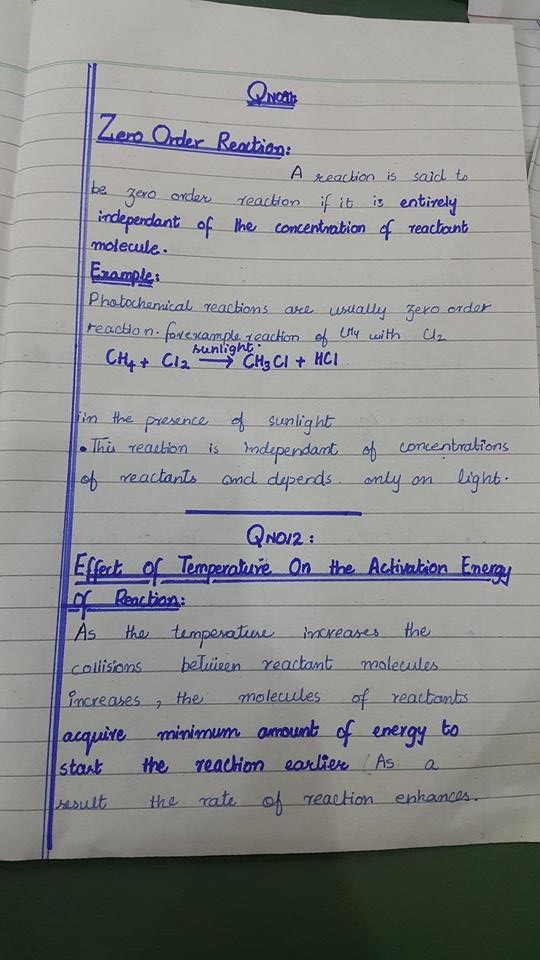 Zero Order Reaction:
A reaction is said to
be zero order reaction if it is entirely
independant of the concentration of reactant
molecule.
Example:
Photochemical reactions are usually zero order
reaction. for example reaction of CH4 with Cl2
sunlight.
CH4 + Cl2 → CH3Cl + HCl
in the presence of sunlight
• This reaction is independant of concentrations
of reactants and depends. only on light.
QNO12:
Effect Of Temperature On the Activation Energy
Of Reaction:
As the temperature increases the
collisions between reactant molecules
increases, the molecules of reactants
acquire minimum amount of energy to
start the reaction earlier (As a
result the rate of reaction enhances.